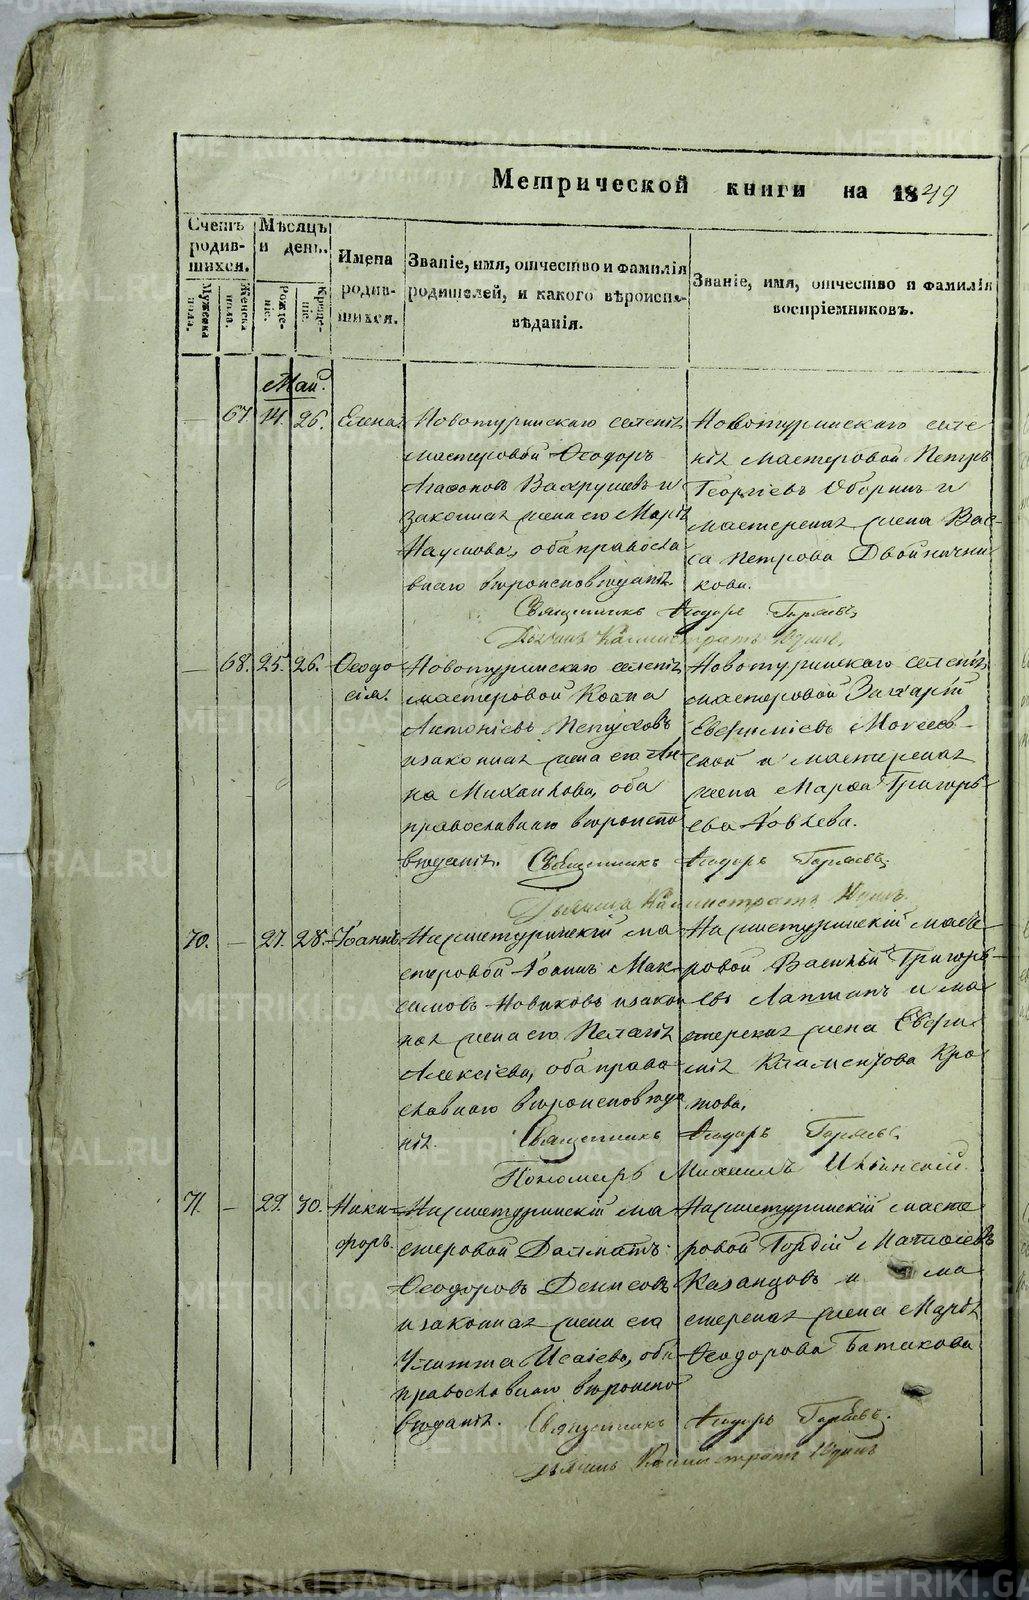 Метрической книги на 1849
Счетъ родив-шихся.
Мужеска пола.
Женска пола.
Мѣсяцъ и день.
Рожде-ніе.
Креще-ніе.
Имена родив-шихся.
Званіе, имя, отчество и фамилія
родителей, и какого вѣроиспо-
вѣданія.
Званіе, имя, отчество и фамилія
воспріемниковъ.
Май.
— 67. 14. 26. Елена
Новотуринскаго селенія
мастеровой Ѳеодоръ
Агафоновъ Вахрушевъ и
законная жена его Марія
Наумова, оба правосла
внаго вѣроисповѣданія.
Новотуринскаго селе
нія мастеровой Петръ
Георгіевъ Оборинъ и
мастерская жена Вас-
са Петрова Двойнични
кова.
Священникъ Ѳеодоръ
— 68. 25. 26. Ѳеодо
сія.
Новотуринскаго селенія
мастеровой Іоанъ
Антоніевъ Петуховъ
и законная жена его Ан-
на Михаилова, оба
православнаго вѣроиспо
вѣданія.
Новотуринскаго селенія
мастеровой Захарій
Евфиміевъ Моисеев-
ской и мастерская
жена Марѳа Григорь-
ева Іовлева.
Священникъ Ѳеодоръ
70. — 27. 28. Іоаннъ
Нижнетуринскій ма
стеровой Іоаннъ Мак-
симовъ Новиковъ и закон
ная жена его Пелагія
Алексіева, оба право-
славнаго вѣроисповѣда
нія.
Нижнетуринскій масте
ровой Василій Григорь-
евъ Лаптавъ и ма-
стерская жена Евфи-
мія Климентова Кро-
това.
Священникъ Ѳеодоръ
Пономарь Михаилъ Ильинскій.
71. — 29. 30. Ники-
форъ
Нижнетуринскій ма
стеровой Далматъ
Ѳеодоровъ Денисовъ
и законная жена его
Улитта Исаіева, оба
православнаго вѣроиспо
вѣданія.
Нижнетуринскій масте
ровой Гордій Матѳіевъ
Казанцовъ и ма
стерская жена Марія
Ѳеодорова Батакова
Священникъ Ѳеодоръ
METRIKI.GASO-URAL.RU